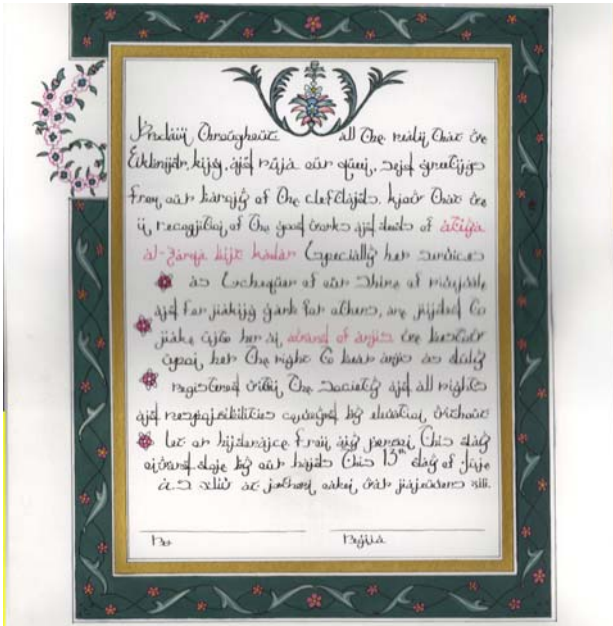 Proclaim Throughout all the realm that we
king, and runa our queen, send greetings
from our barony of the cleftlands. know that we
in recognition of the good works and deeds of atiya
al-zarqa bint Especially her services
as Exchequer of our Shire of rivenvale
and for making garb for others, are minded to
make unto her an award of arms we bestow
upon her the right to bear arms as duly
registered within the society and all rights
and responsibilities conveyed by elevation without
let or hinderance from any person this day
done by our hands this 13th day of june
a.s at northern oaken war maneuvers
Rex Regina